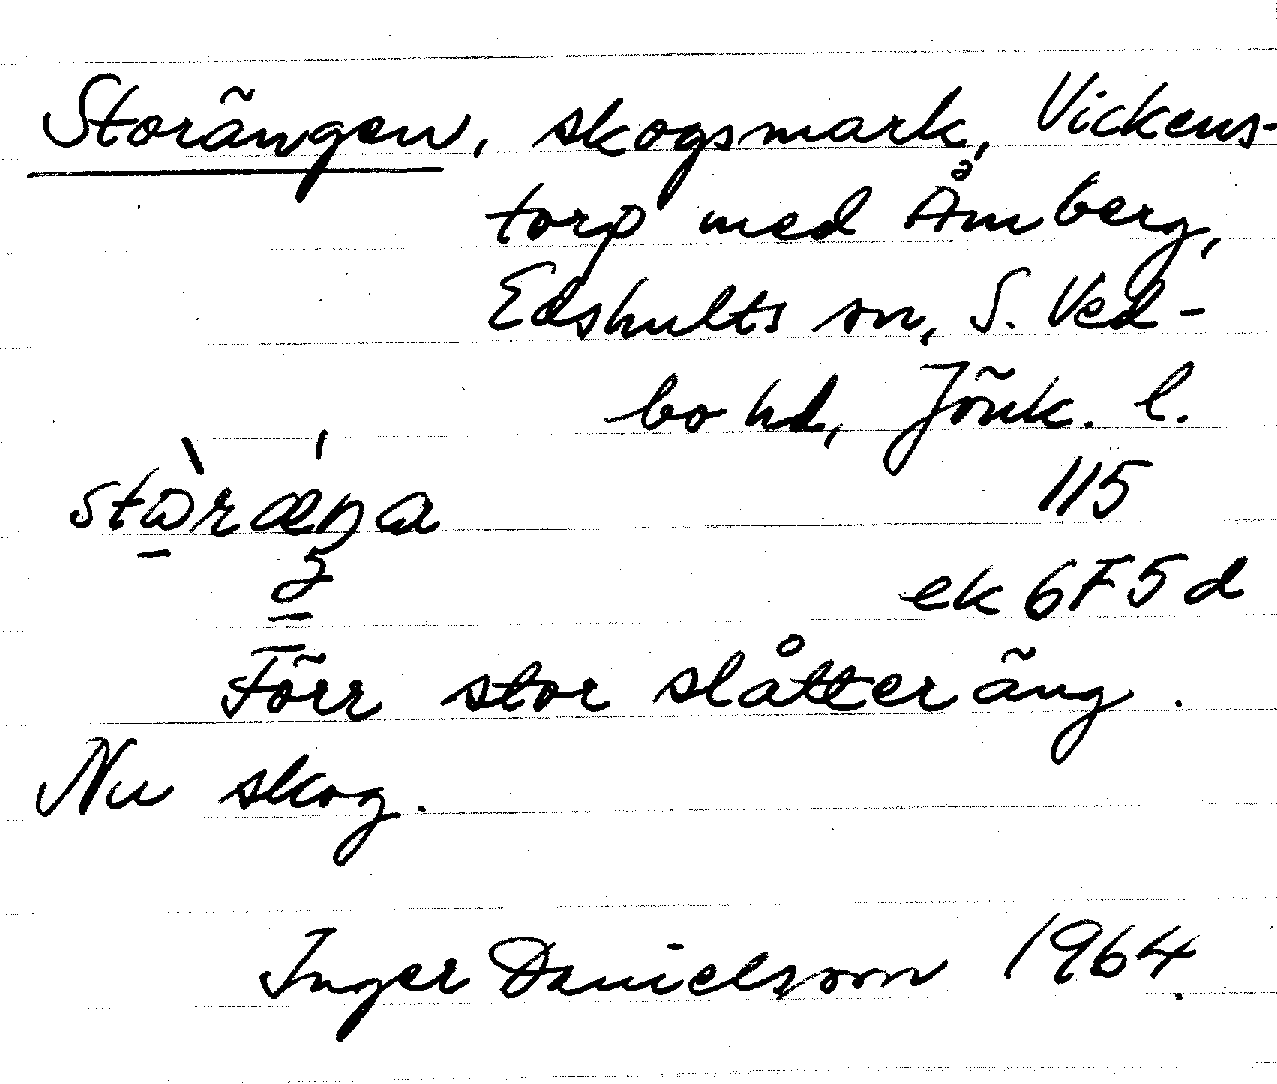 Storängen, skogsmark, Vickens-
torp med Åmberg,
Edshults sn, S. Ved-
bo hd, Jönk. l.
115
ek 6F5d
Förr stor slåtteräng.
Nu skog.
Inger Danielsson 1964.